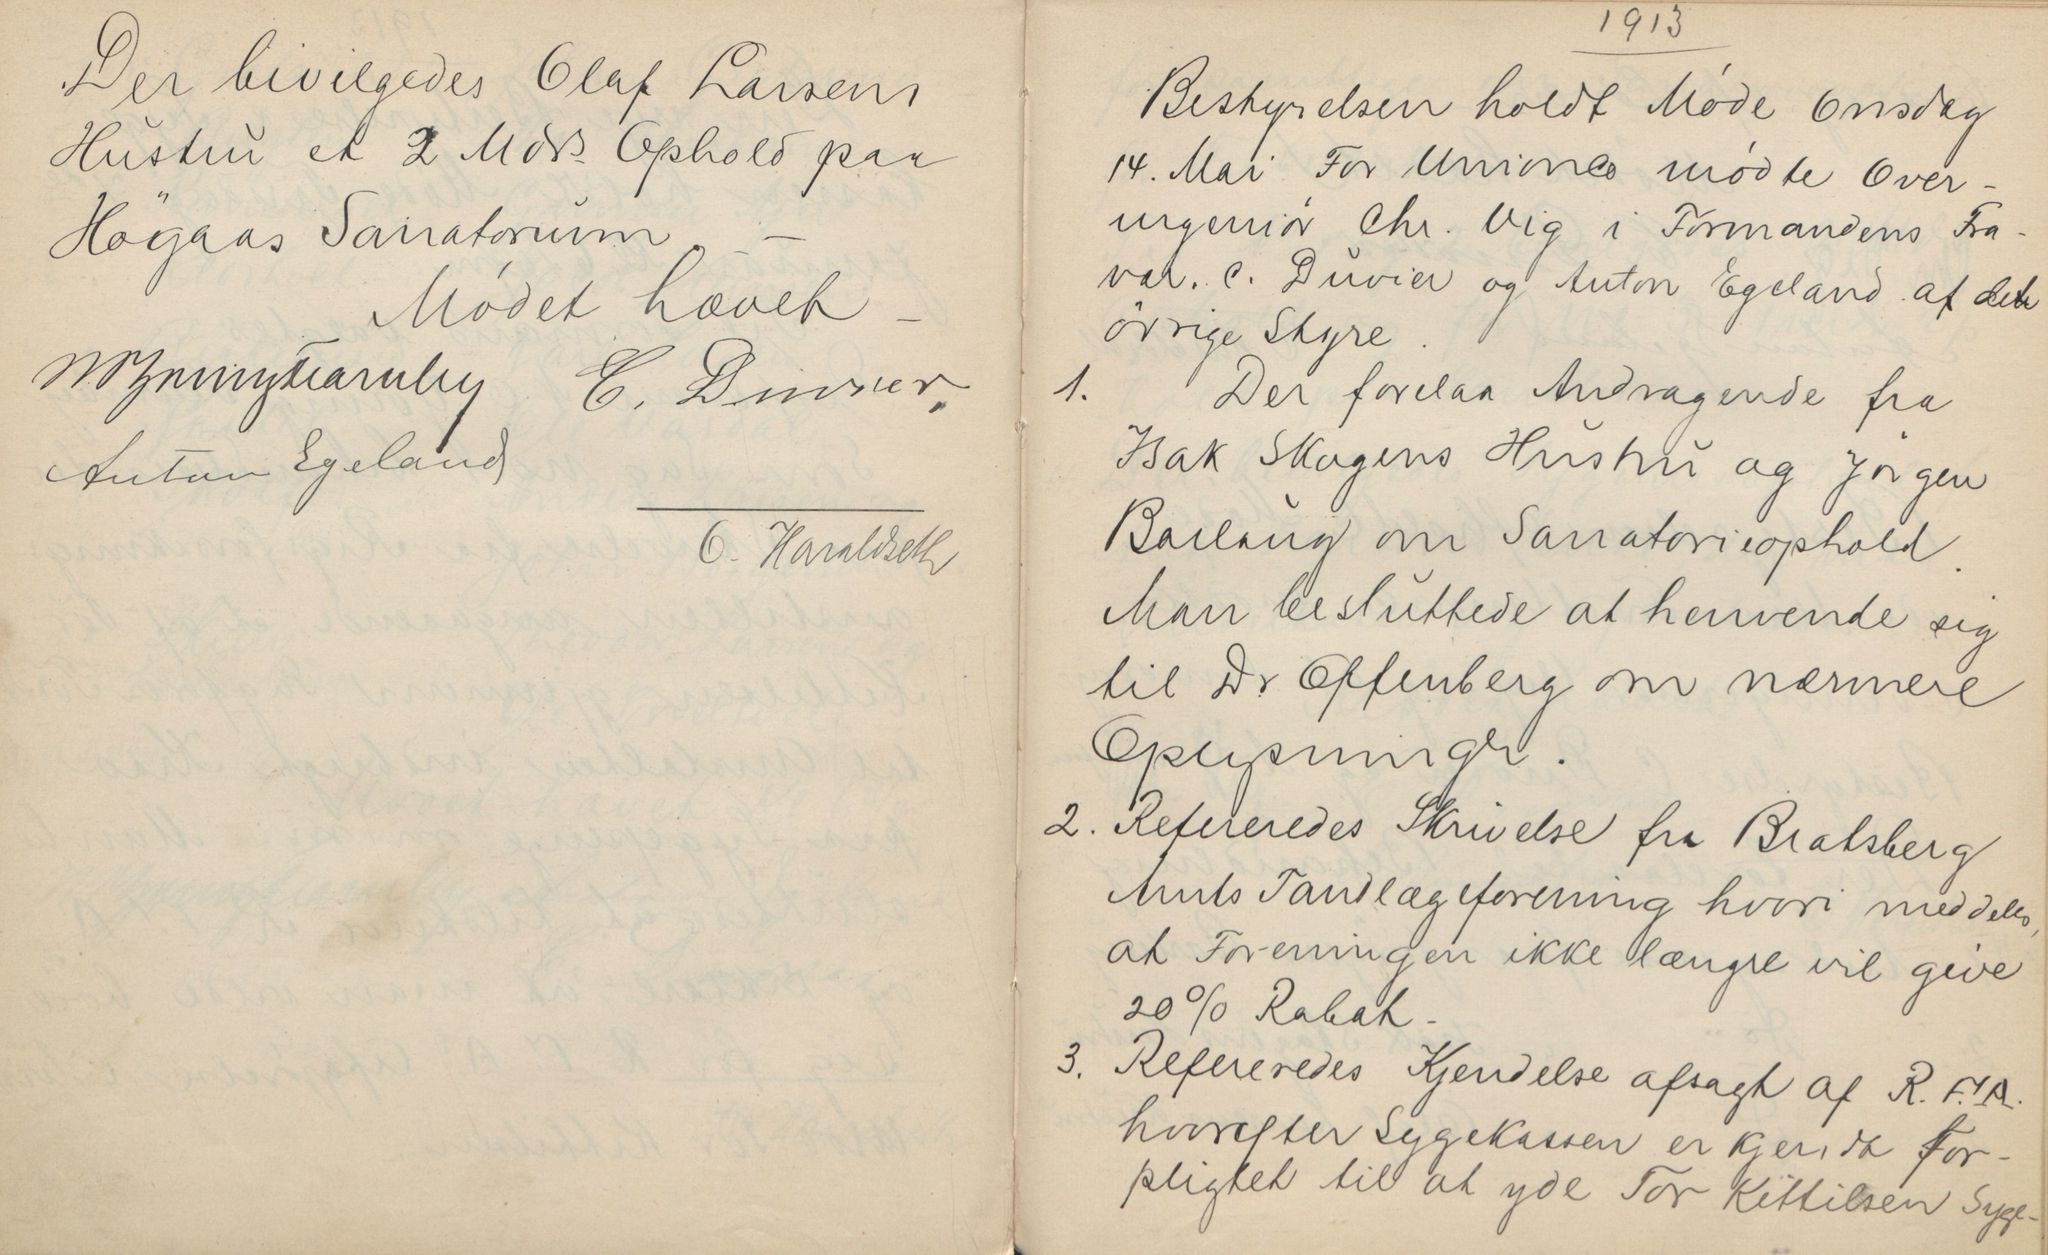 Der bivilgedes Olaf Larsens
Hustru et 2 Mdrs Ophold paa
Högaas Sanatorium. –
Mödet hævet –
C. Duvier.
Anton Egeland
O. Haraldseth
1913
Bestyrelsen holdt Möde Onsdag
14. Mai For Unionco mödte Over-
ingeniör Chr. Vig i Formandens Fra-
vær. C. Duvier og Anton Egeland af det
övrige Styre.
1. Der forelaa Andragende fra
Isak Skogens Hustru og Jörgen
Barlaug om Sanatorieophold.
Man besluttede at henvende sig
til Dr Offenberg om nærmere
Oplysninger.
2. Refereredes Skrivelse fra Bratsberg
Amts Tandlægeforening hvori meddeles,
at Foreningen ikke længre vil give
20% Rabat –
3. Refereredes Kjendelse afsagt af R.F.A.
hvorefter Sygekassen er kjendt For-
pligtet til at yde Tor Kittilsen Syge-